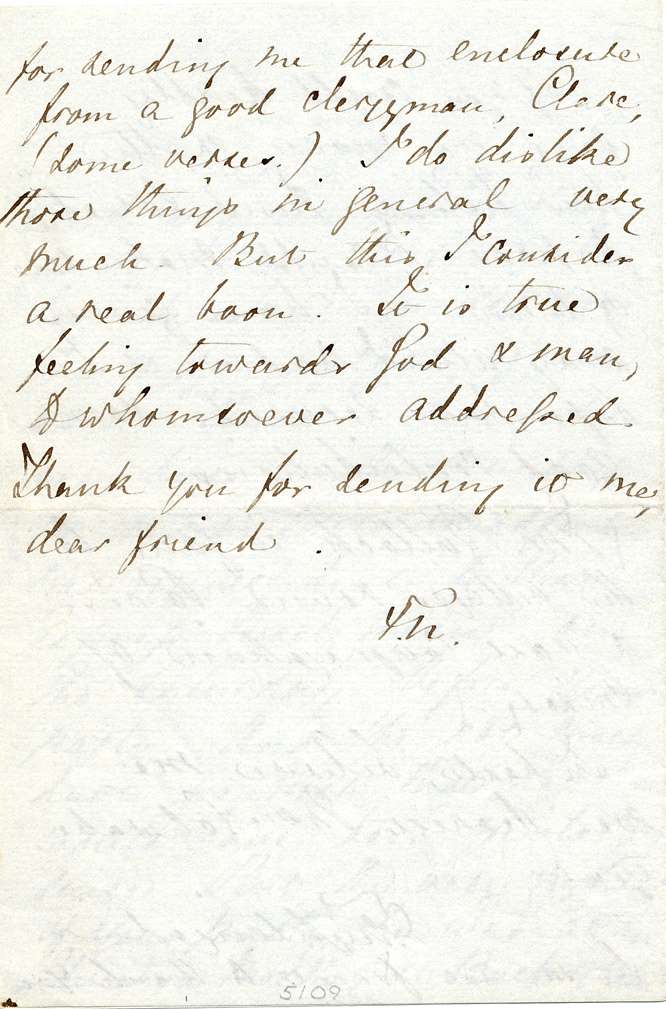 for sending me that enclosure
from a good clergyman, Clare,
(some verses.) I do dislike
those things in general very
much. But this I consider
a real boon. It is true
feeling towards God & man,
& whomsoever addressed.
Thank you for sending it me,
dear friend.
F.N.
5109